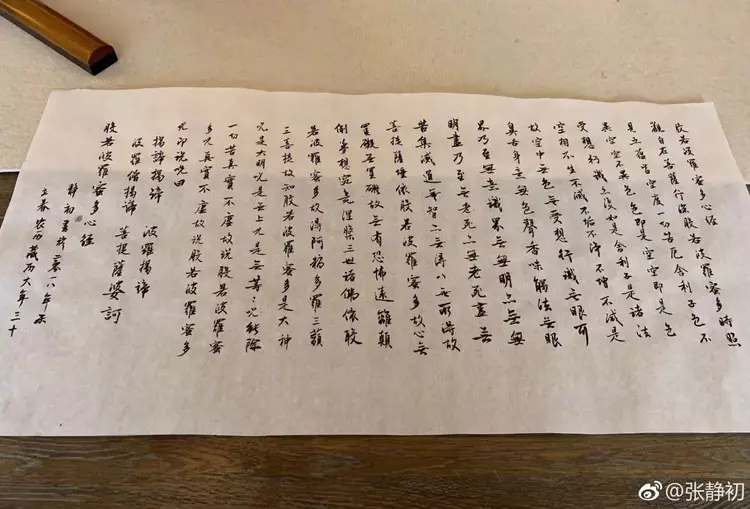 般若波羅蜜多心经
觀自在菩薩行深般若波羅蜜多時照
見五蘊皆空度一切苦厄舍利子色不
異空空不異色色即是空空即是色
受想行識亦復如是舍利子是諸法
空相不生不滅不垢不淨不增不減是
故空中無色無受想行識無眼耳
鼻舌身意無色聲香味觸法無眼
界乃至無意識界無無明亦無無
明盡乃至無老死亦無老死盡無
苦集滅道無智亦無得以無所得故
菩提薩埵依般若波羅蜜多故心無
罣礙無罣礙故無有恐怖遠離顛
倒夢想究竟涅槃三世諸佛依般
若波羅蜜多故得阿耨多羅三藐
三菩提故知般若波羅蜜多是大神
咒是大明咒是無上咒是無等々咒能除
一切苦真實不虛故说般若波羅蜜
多咒真實不虛故说般若波羅蜜多
咒即说咒曰
揭諦揭諦 波羅揭諦
波羅僧揭諦 菩提薩婆訶
般若波羅蜜多心经
静初 二零一八年
立春 农历藏历大年三十
@张静初